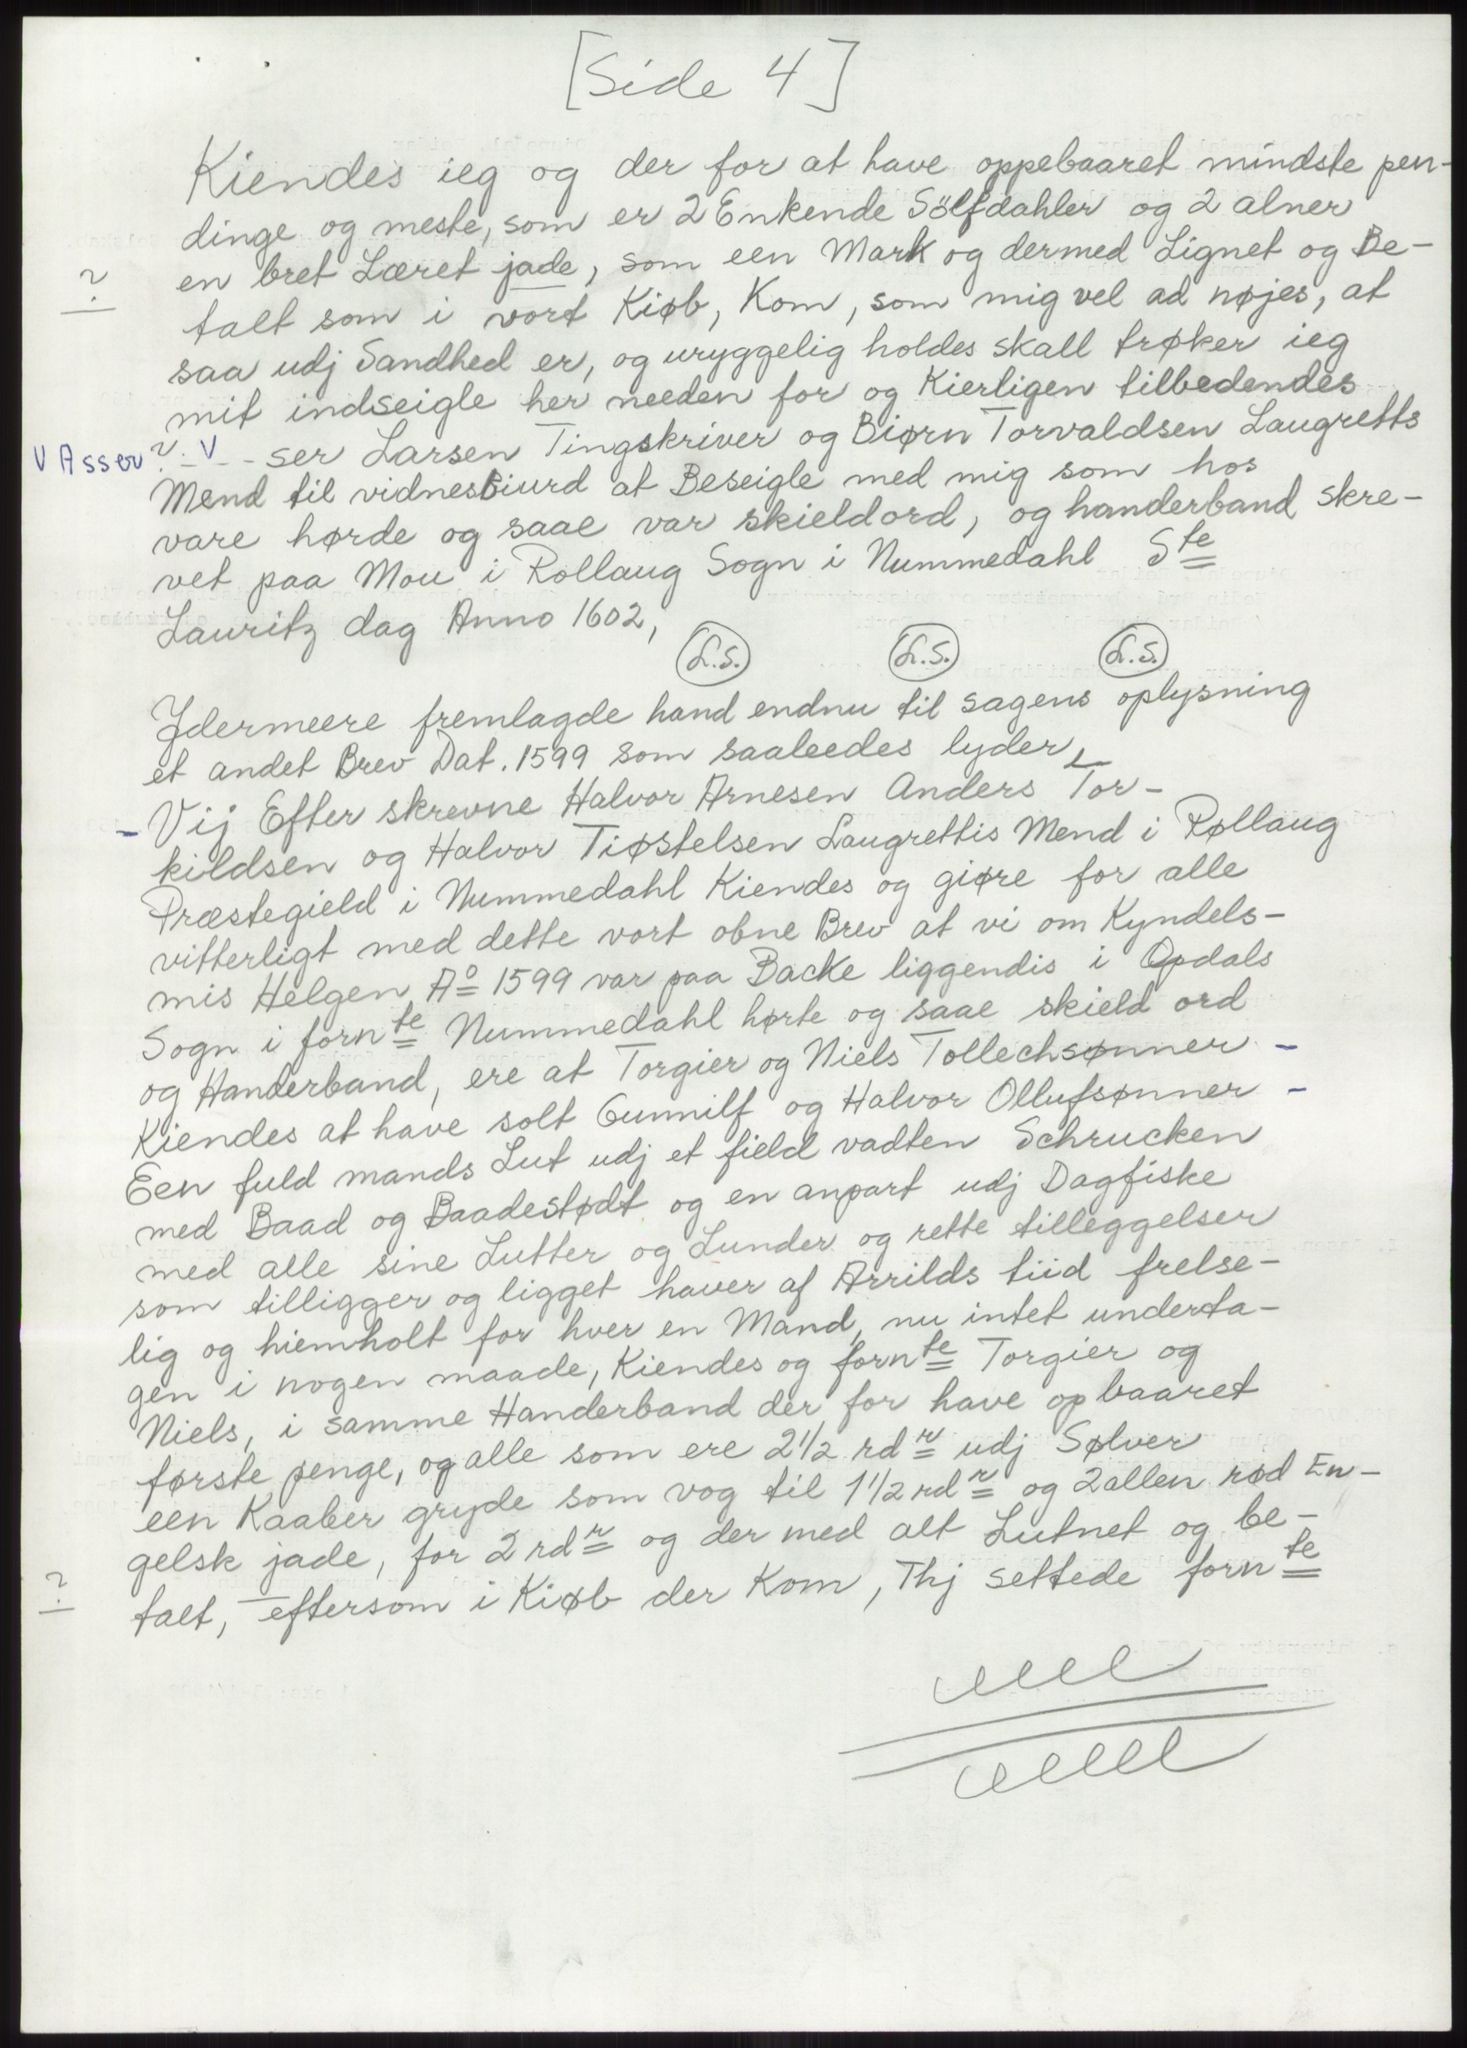 [Side 4]
Kiendes ieg og der for at have oppebaaret mindste pen-
dinge og meste, som er 2 Enkende Sölfdahler og 2 alner
en bret Læret jade, som een Mark og dermed Lignet og Be-
?
talt som i vort Kiøb, Kom, som mig vel ad nøjes, at
saa udj Sandhed er, og uryggelig holdes skall trøker ieg
mit indseigle her needen for og Kierligen tilbedendes
V Asser ? - V - - ser Larsen Tingskriver og Biørn Torvaldsen Laugretts
Mend til vidnesbiurd at Beseigle med mig som hos
vare hørde og saae var skieldord, og handerband skre-
vet paa Mou i Rollaug Sogn i Nummedahl Ste
Lauritz dag Anno 1602,
L.S. L.S. L.S.
Ydermeere fremlagde hand endnu til sagens oplysning
et andet Brev Dat. 1599 som saaleedes lyder,
- Vij Efter skrevne Halvor Arnesen Anders Tor-
kildsen og Halvor Tiøstelsen Laugrettis Mend i Røllaug
Præstegield i Nummedahl Kiendes og giøre for alle
vitterligt med dette vort obne Brev at vi om Kyndels-
mis Helgen Aº 1599 var paa Backe liggendis i Opdals
Sogn i fornte Nummedahl hørte og saae skield ord
og Handerband, ere at Torgier og Niels Tollechsønner -
Kiendes at have solt Gunnilf og Halvor Ollufsønner -
Een fuld mands Lut udj et field vadten Schrucken
med Baad og Baadestødt og en anpart udj Dagfiske
med alle sine Lutter og Lunder og rette tilleggelser
som tilligger og ligget haver af Arrilds tiid frelse-
lig og hiemholt for hver en Mand, nu intet underta-
gen i nogen maade, Kiendes og fornte Torgier og
Niels, i samme Handerband der for have opbaaret
første penge, og alle som ere 2 1/2 rdr udj Sølver
een Kaaber gryde som vog til 1 1/2 rdr og 2 allen rød En-
gelsk jade, for 2 rdr og der med alt Lutnet og be-
?
talt, eftersom i Kiøb der Kom, Thj settede fornte